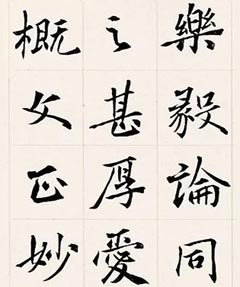 樂毅論同
之甚厚愛
概文正妙